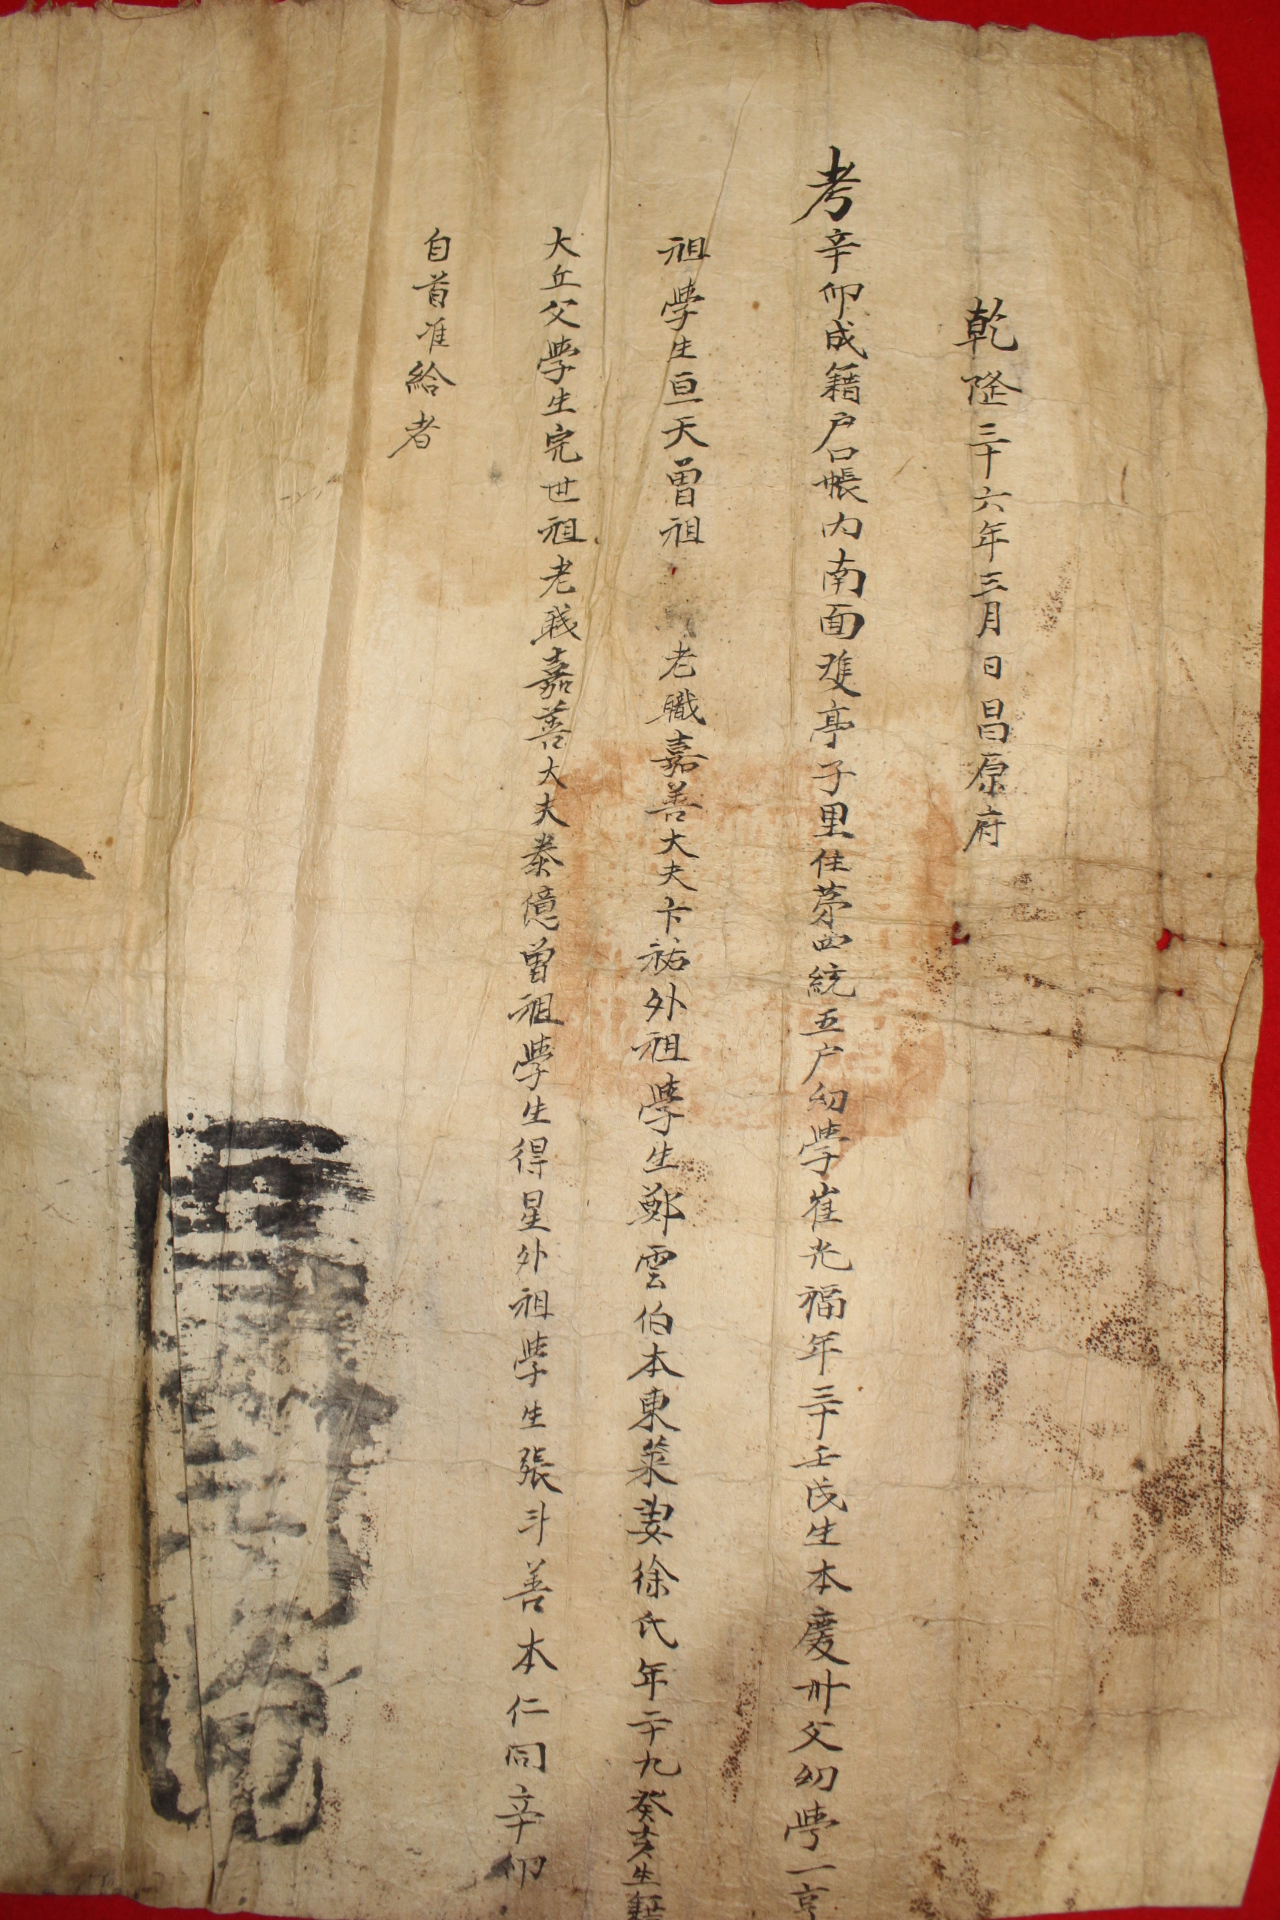 乾隆三十六年三月日昌原府
考辛卯成籍户口帳內南面雙亭子里住苐四統五户幼學崔光福年三十壬戌生本慶州父幼學一亨
祖學生亘天曾祖老職嘉善大夫卞祐外祖學生鄭雲伯本東萊妻徐氏年二十九癸亥生籍
大丘父學生完世祖老職嘉善大夫泰億曾祖學生得星外祖學生張斗善本仁同辛卯
自首准給者